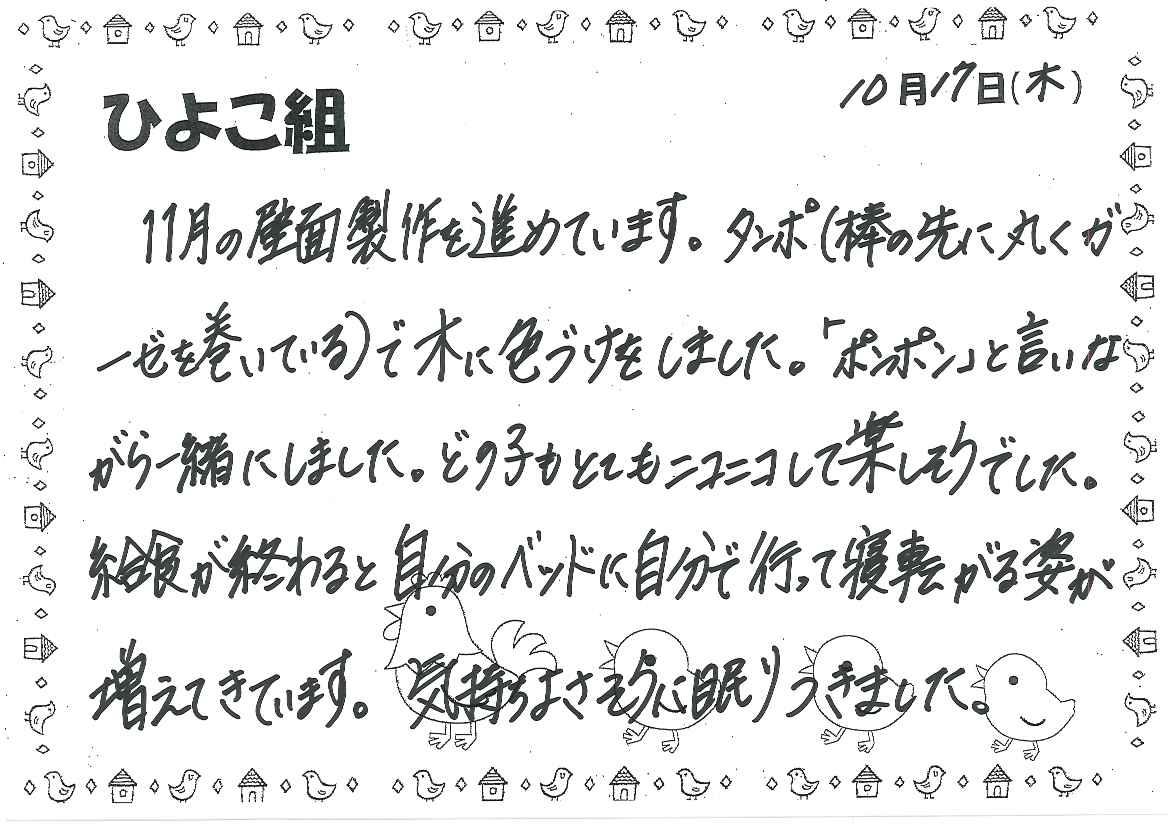 10月17日(木)
ひよこ組
11月の壁面製作を進めています。タンポ(棒の先に丸くガ
ーゼを巻いている)で木に色づけをしました。「ポンポン」と言いな
がら一緒にしました。どの子もとてもニコニコして楽しそうでした。
給食が終わると自分のベッドに自分で行って寝転がる姿が
増えてきています。気持ちよさそうに眠りつきました。